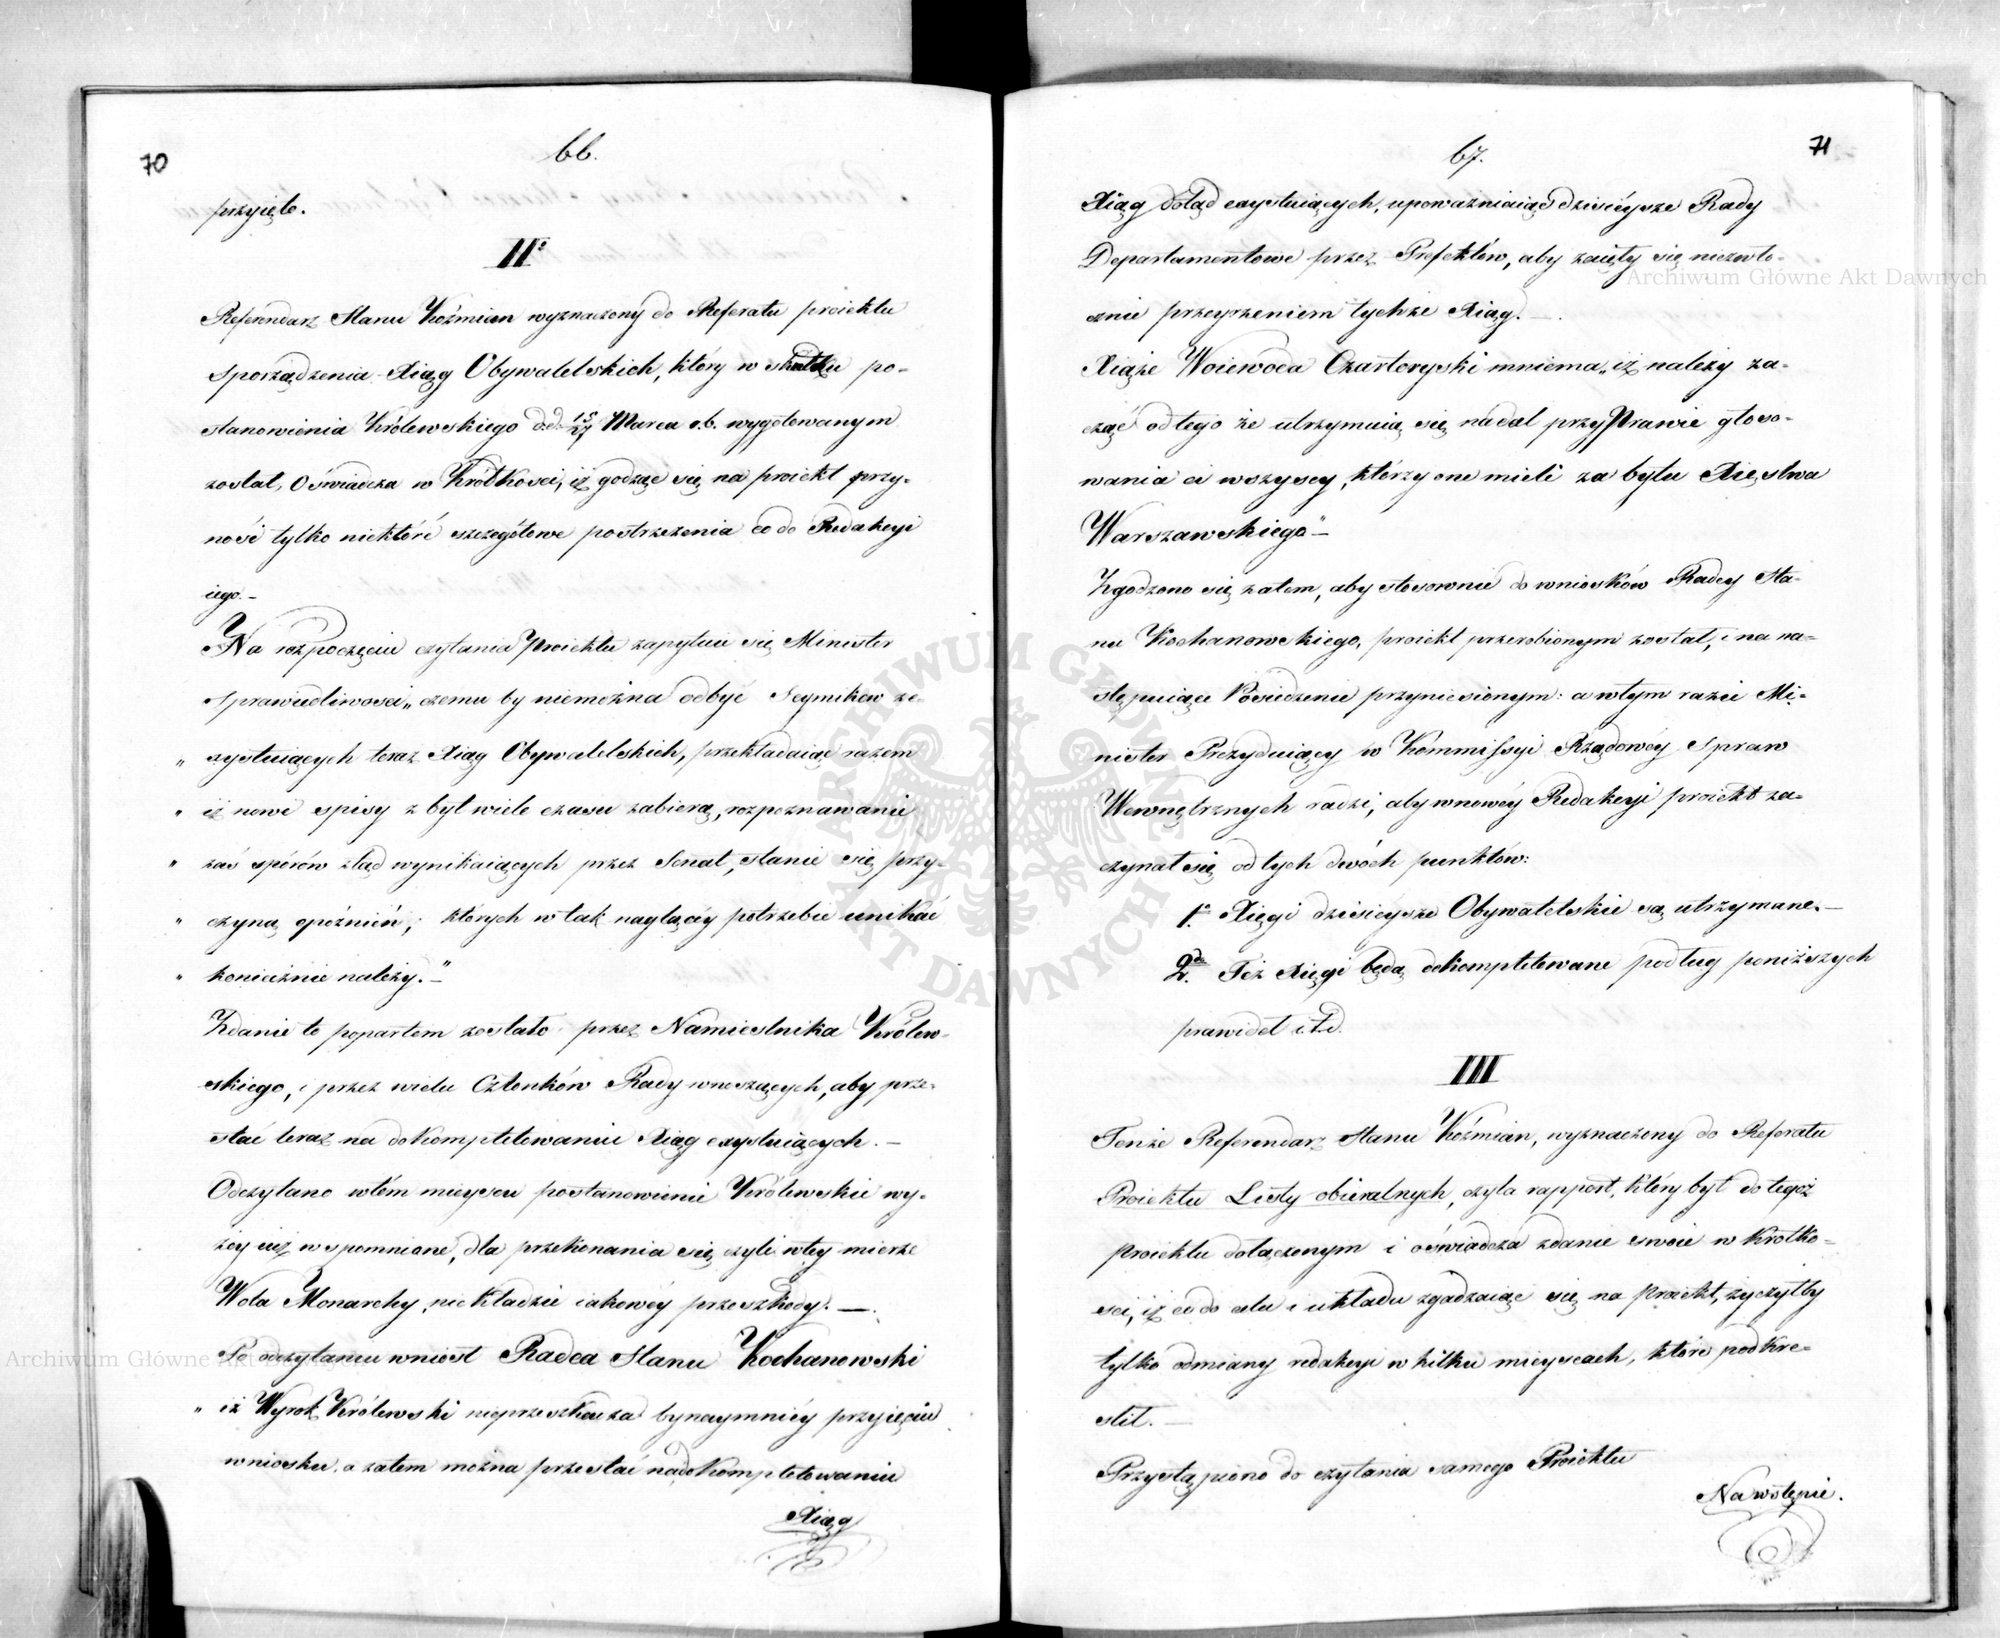 70
66.
przyięto.
IIº
Referendarz Stanu Koźmian wyznaczony do Referatu proiektu
sporządzenia Xiąg Obywatelskich, który w skutku po-
stanowienia Królewskiego d.d. 15/27 Marca r.b. wygotowanym
został, Oświadcza w Krótkości, iż godząc się na proiekt przy-
nosi tylko niektóre szczegółowe postrzeżenia co do Redakcyi
iego.—
Na rozpoczęciu czytania Proiektu zapytuie się Minister
Sprawiedliwości „czemu by niemożna odbyć Seymików ze-
„ xystuiących teraz Xiąg Obywatelskich, przekładaiąc razem
„ iż nowe spisy zbyt wiele czasu zabiorą, rozpoznawanie
„ zaś sporów ztąd wynikaiących przez Senat, stanie się przy-
„ czyną opóźnień, których w tak naglącéy potrzebie unikać
„ koniecznie należy."—
Zdanie to popartem zostało przez Namiestnika Królew-
skiego, i przez wielu Członków Rady wnoszących, aby prze-
stać teraz na dokompletowaniu Xiąg exystuiących.—
Odczytano w tém mieyscu postanowienie Królewskie wy-
żey iuż wspomnione, dla przekonania się czyli w téy mierze
Wola Monarchy, nie kładzie iakowéy przeszkody.—.
Po odczytaniu wniosł Radca Stanu Kochanowski
„ iż Wyrok Królewski nieprzeszkadza bynaymniéy przyięciu
wniosku, a zatem można przestać na dokompletowaniu
Xiąg
67.
71
Xiąg dotąd exystuiących, upoważniaiąc dzisiéysze Rady
Departamentowe przez Prefektów, aby zaięły się niezwło-
cznie przeyrzeniem tychże Xiąg.—.
Xiąże Woiewoda Czartoryski mniema „iż należy za-
cząć od tego że utrzymuią się nadal przy Prawie głoso-
wania ci wszyscy, którzy one mieli za bytu Xięstwa
Warszawskiego"—
Zgodzono się zatem, aby stosownie do wniosków Radcy Sta-
nu Kochanowskiego, proiekt przerobionym został, i na na-
stępuiące Posiedzenie przyniesionym: a w tym razie Mi-
nister Prezyduiący w Kommissyi Rządowéy Spraw
Wewnętrznych radzi, aby w nowéy Redakcyi proiekt za-
czynał się od tych dwóch punktów:
1º Xięgi dzisieysze Obywatelskie są utrzymane.—
2do Też Xięgi będą dokompletowane podług poniższych
prawideł i.t.d.
III
Tenże Referendarz Stanu Koźmian, wyznaczony do Referatu
Proiektu Listy obieralnych, czyta rapport, który był do tegoż
proiektu dołączonym i oświadcza zdanie swoie w krótko-
sci, iż co do celu i układu zgadzaiąc się na proiekt, życzyłby
tylko odmiany redakcyi w kilku mieyscach, które podkre-
slił.—
Przystąpiono do czytania samego Proiektu
Na wstępie.
Archiwum Główne Akt Dawnych
Archiwum Główne Akt
ARCHIWUM GŁÓWNE AKT DAWNYCH